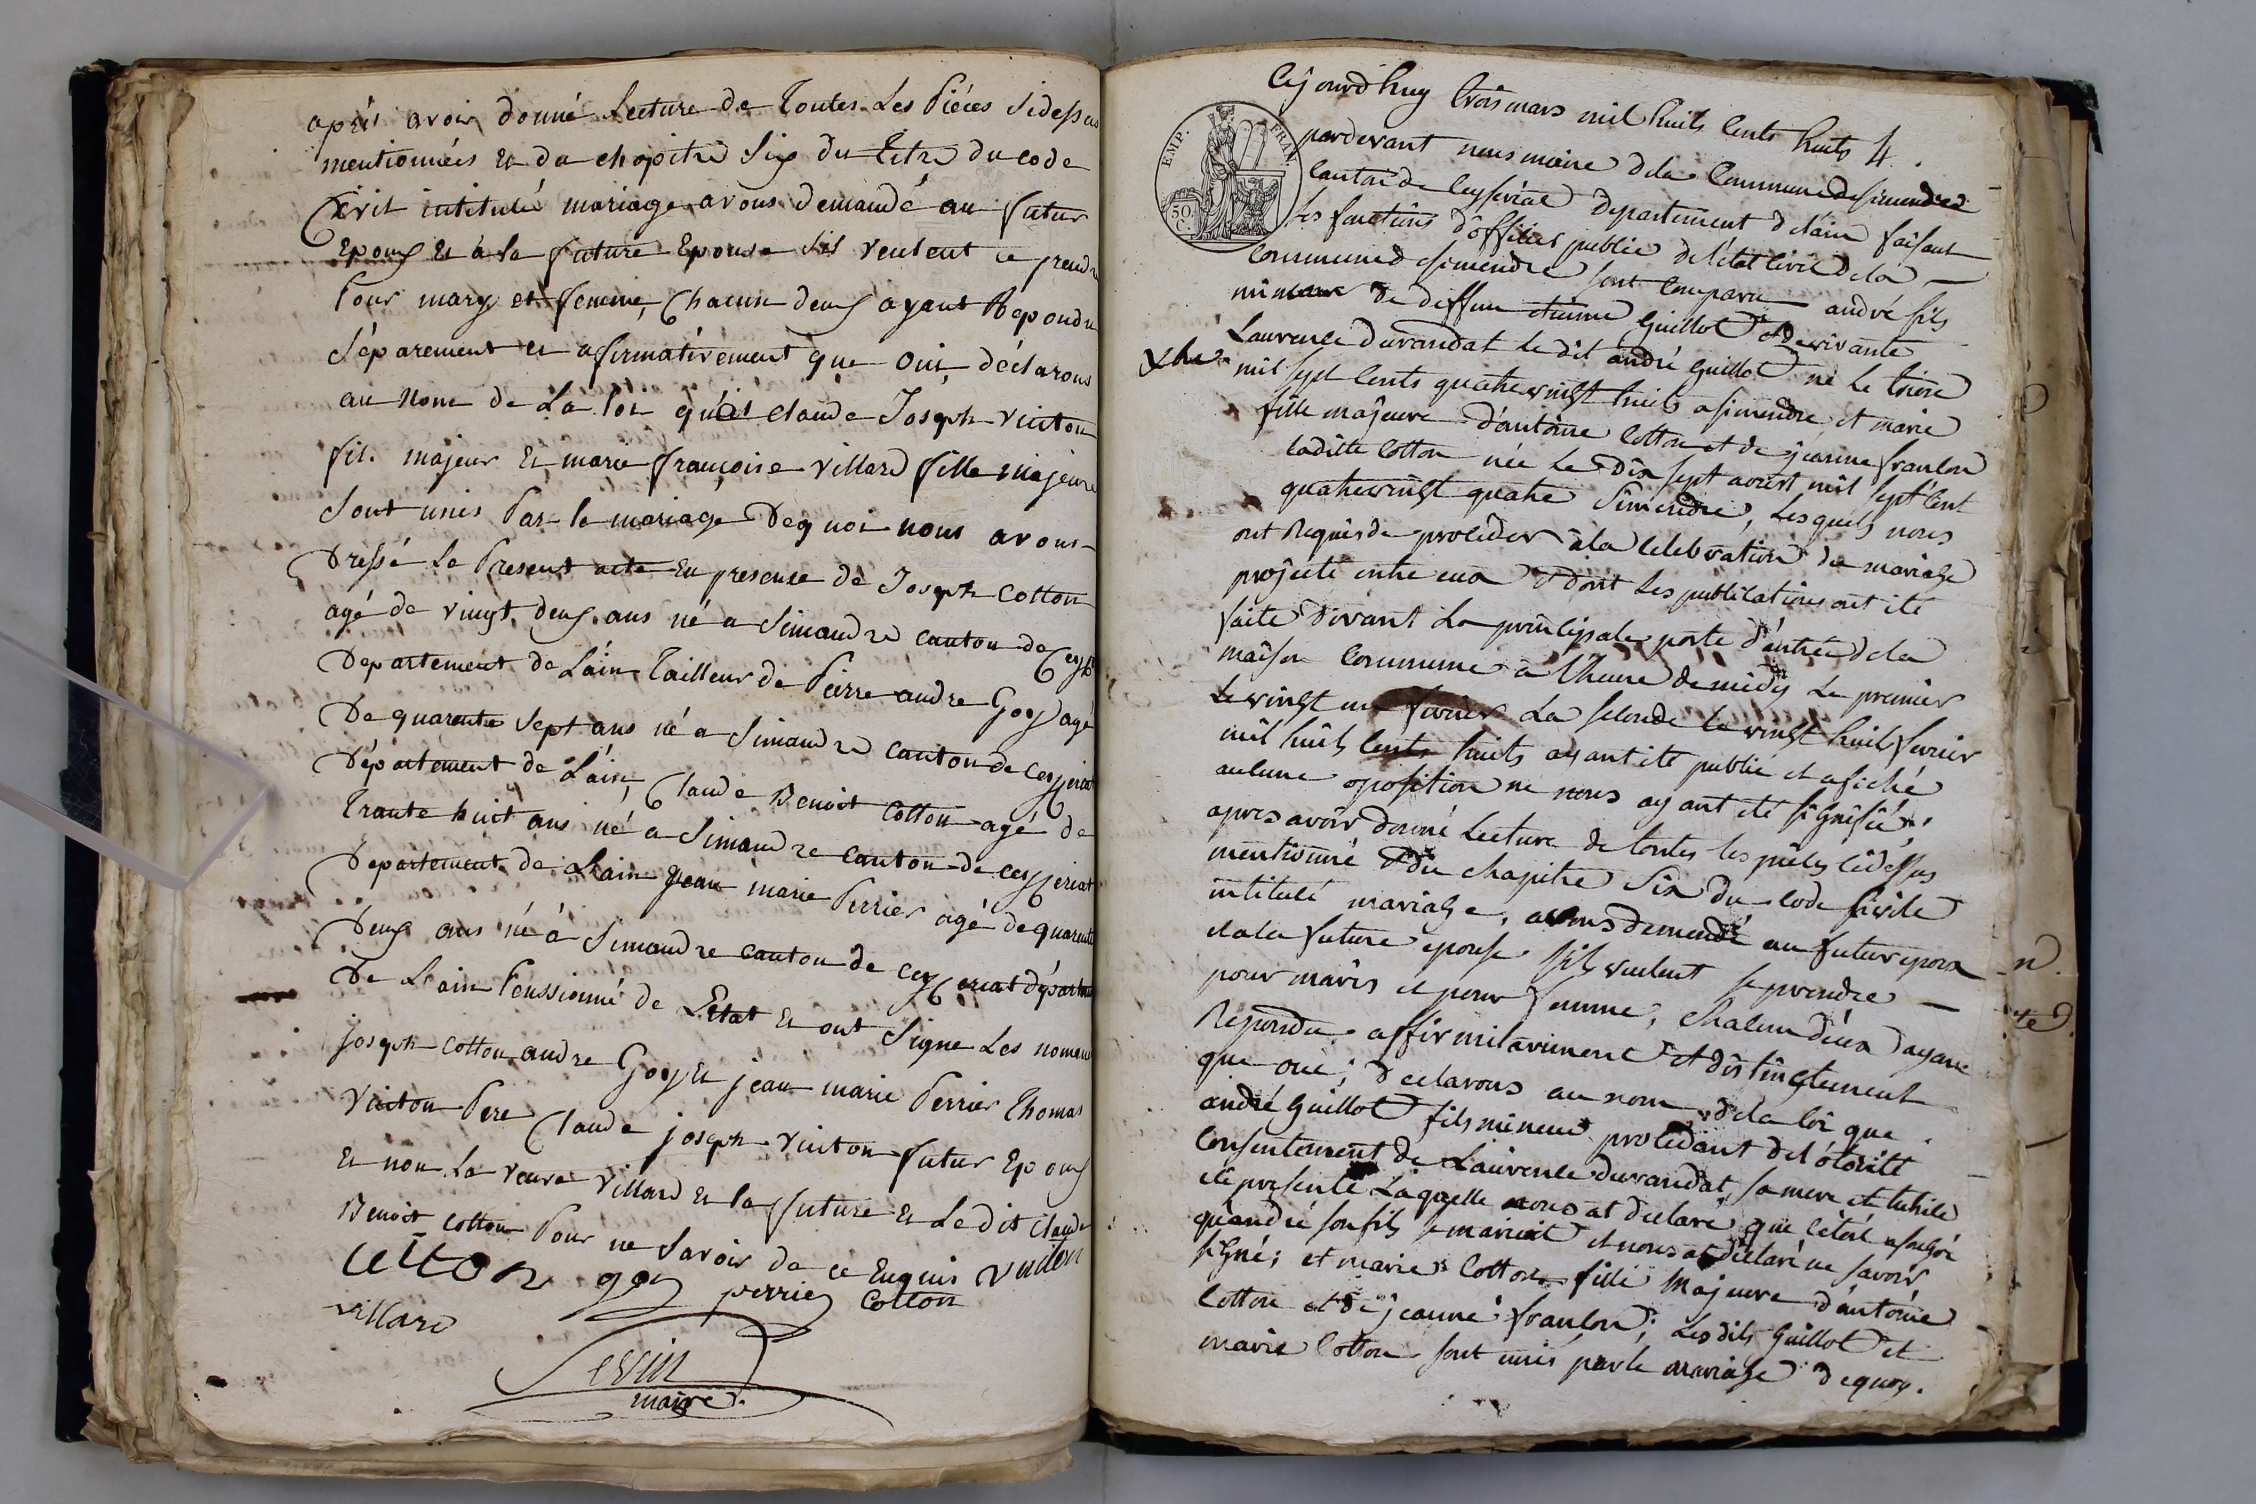 après avoir donné Lecture de Toutes Les Piéces Sidessus
mentionnées et du chapitre Six du Titre du code
Civil intitulé mariage avons demandé au futur
Epoux Et à la future Epouse Sil veulent ce prendre
Pour mary et femme, Chacun deux ayant Repondu
Séparement et afirmativement que oui, déclarons
au Nom de La loi que claude Joseph Vuiton
fils majeur Et marie françoise villard fille majeure
Sont unis Par le mariage Dequoi nous avons
Dressé Le Present acte En presence de Joseph Cotton
agé de vingt deux ans né a Simandre canton de
Departement de Lain Tailleur de Pierre andre Goy agé
De quarente Sept ans né a Simandre canton de ceyzeriat
Département de Lain, Claude Benoit Cotton agé de
Trante huit ans né a Simandre canton de ceyzeriat
Département de Lain Jean marie Perrier agé de quarente
Deux ans né à Simandre canton de ceyzeriat départem
De Lain Penssionné de Letat Et ont Signe Les nommé
joseph Cotton andre Goy Et jean marie Perrier Thomas
Vuiton Pere Claude joseph Vuiton futur Epoux
Et non La veuve Villard Et la future Et Le dit Claude
Benoit Cotton Pour ne Savoir de ce Enquis vuiton
Cotton goy perrier Cotton
villard
Sevin
maire
EMP. FRAN.
50. C.
Cejourdhuy trois mars mil huits cents huits 4.
pardevant nous maire dela Commune desimendre
Canton de Ceyseriat departement delain faisant
les fonctions dofficier public delétat Civil dela
Commune desimendre sont comparu andré fils
mineur de deffun etienne Guillot et devivante
Laurence durandat le dit andré Guillot né le treize
xbre mil sept cents quatrevingt huits a simendre et marie
fille majeure d'antoine Cotton et de jeanne franlon
laditte Cotton née le Dix sept avert mil sept cent
quatrevingt quatre Simendre, Lesquels nous
ont Requis de proceder à la celebration du mariage
projeté entre eux et dont les publications ont ité
faite Divant La principale porte d'entrée dela
maison Commune à l'heure de midy Le premier
Levingt un fevrier La seconde le vingt huits fevrier
mil huits cents huits ayant ité publié et afiché
aucune oposition ne nous ayant ité signifié,
apres avoir donné Lecture de toutes les piéces cidessus
mentionné et du chapitre Six du code sivile
intitulé mariage, avons demendé au futur epoux
et ala future epouse sils veulent se prendre
pour maris et pour femme, chacun d'eux ayant
Repondu affirmitavement et distinctement
que oui; declarons au nom dela loi que
andré Guillot fils mineur procedant de lotorité
Consentement de Laurence durandat, sa mere et tutrice
ité presente Laquelle nous at declare que
qu'andré son fils se marieat et nous at déclaré ne savoir
signé; et marie Cotton fille Majeure d'antoine
Cotton et de jeanne franlon; Lesdits Guillot et
marie Cotton sont unis par le mariage dequoy.